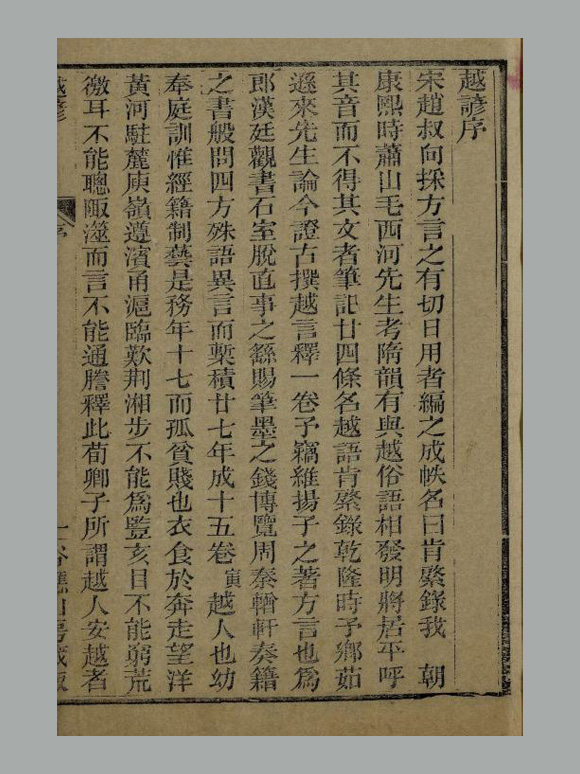 越諺序
宋趙叔向採方言之有切日用者編之成帙名曰肯綮錄我 朝
康熙時蕭山毛西河先生考隋韻有與越俗語相發明將居平呼
其音而不得其文者筆記廿四條名越語肯綮錄乾隆時予鄉茹
遜來先生論今證古撰越言釋一卷予竊維揚子之著方言也爲
郎漢廷觀書石室脫直事之繇賜筆墨之錢博覽周秦輶軒奏籍
之書般問四方殊語異言而槧積廿七年成十五卷寅越人也幼
奉庭訓惟經籍制藝是務年十七而孤貧賤也衣食於奔走望洋
黃河駐麓庾嶺遵濱甬滬臨歎荆湘步不能爲豎亥目不能窮荒
徼耳不能聰陬澨而言不能通膽釋此荀卿子所謂越人安越者
越諺 序 一